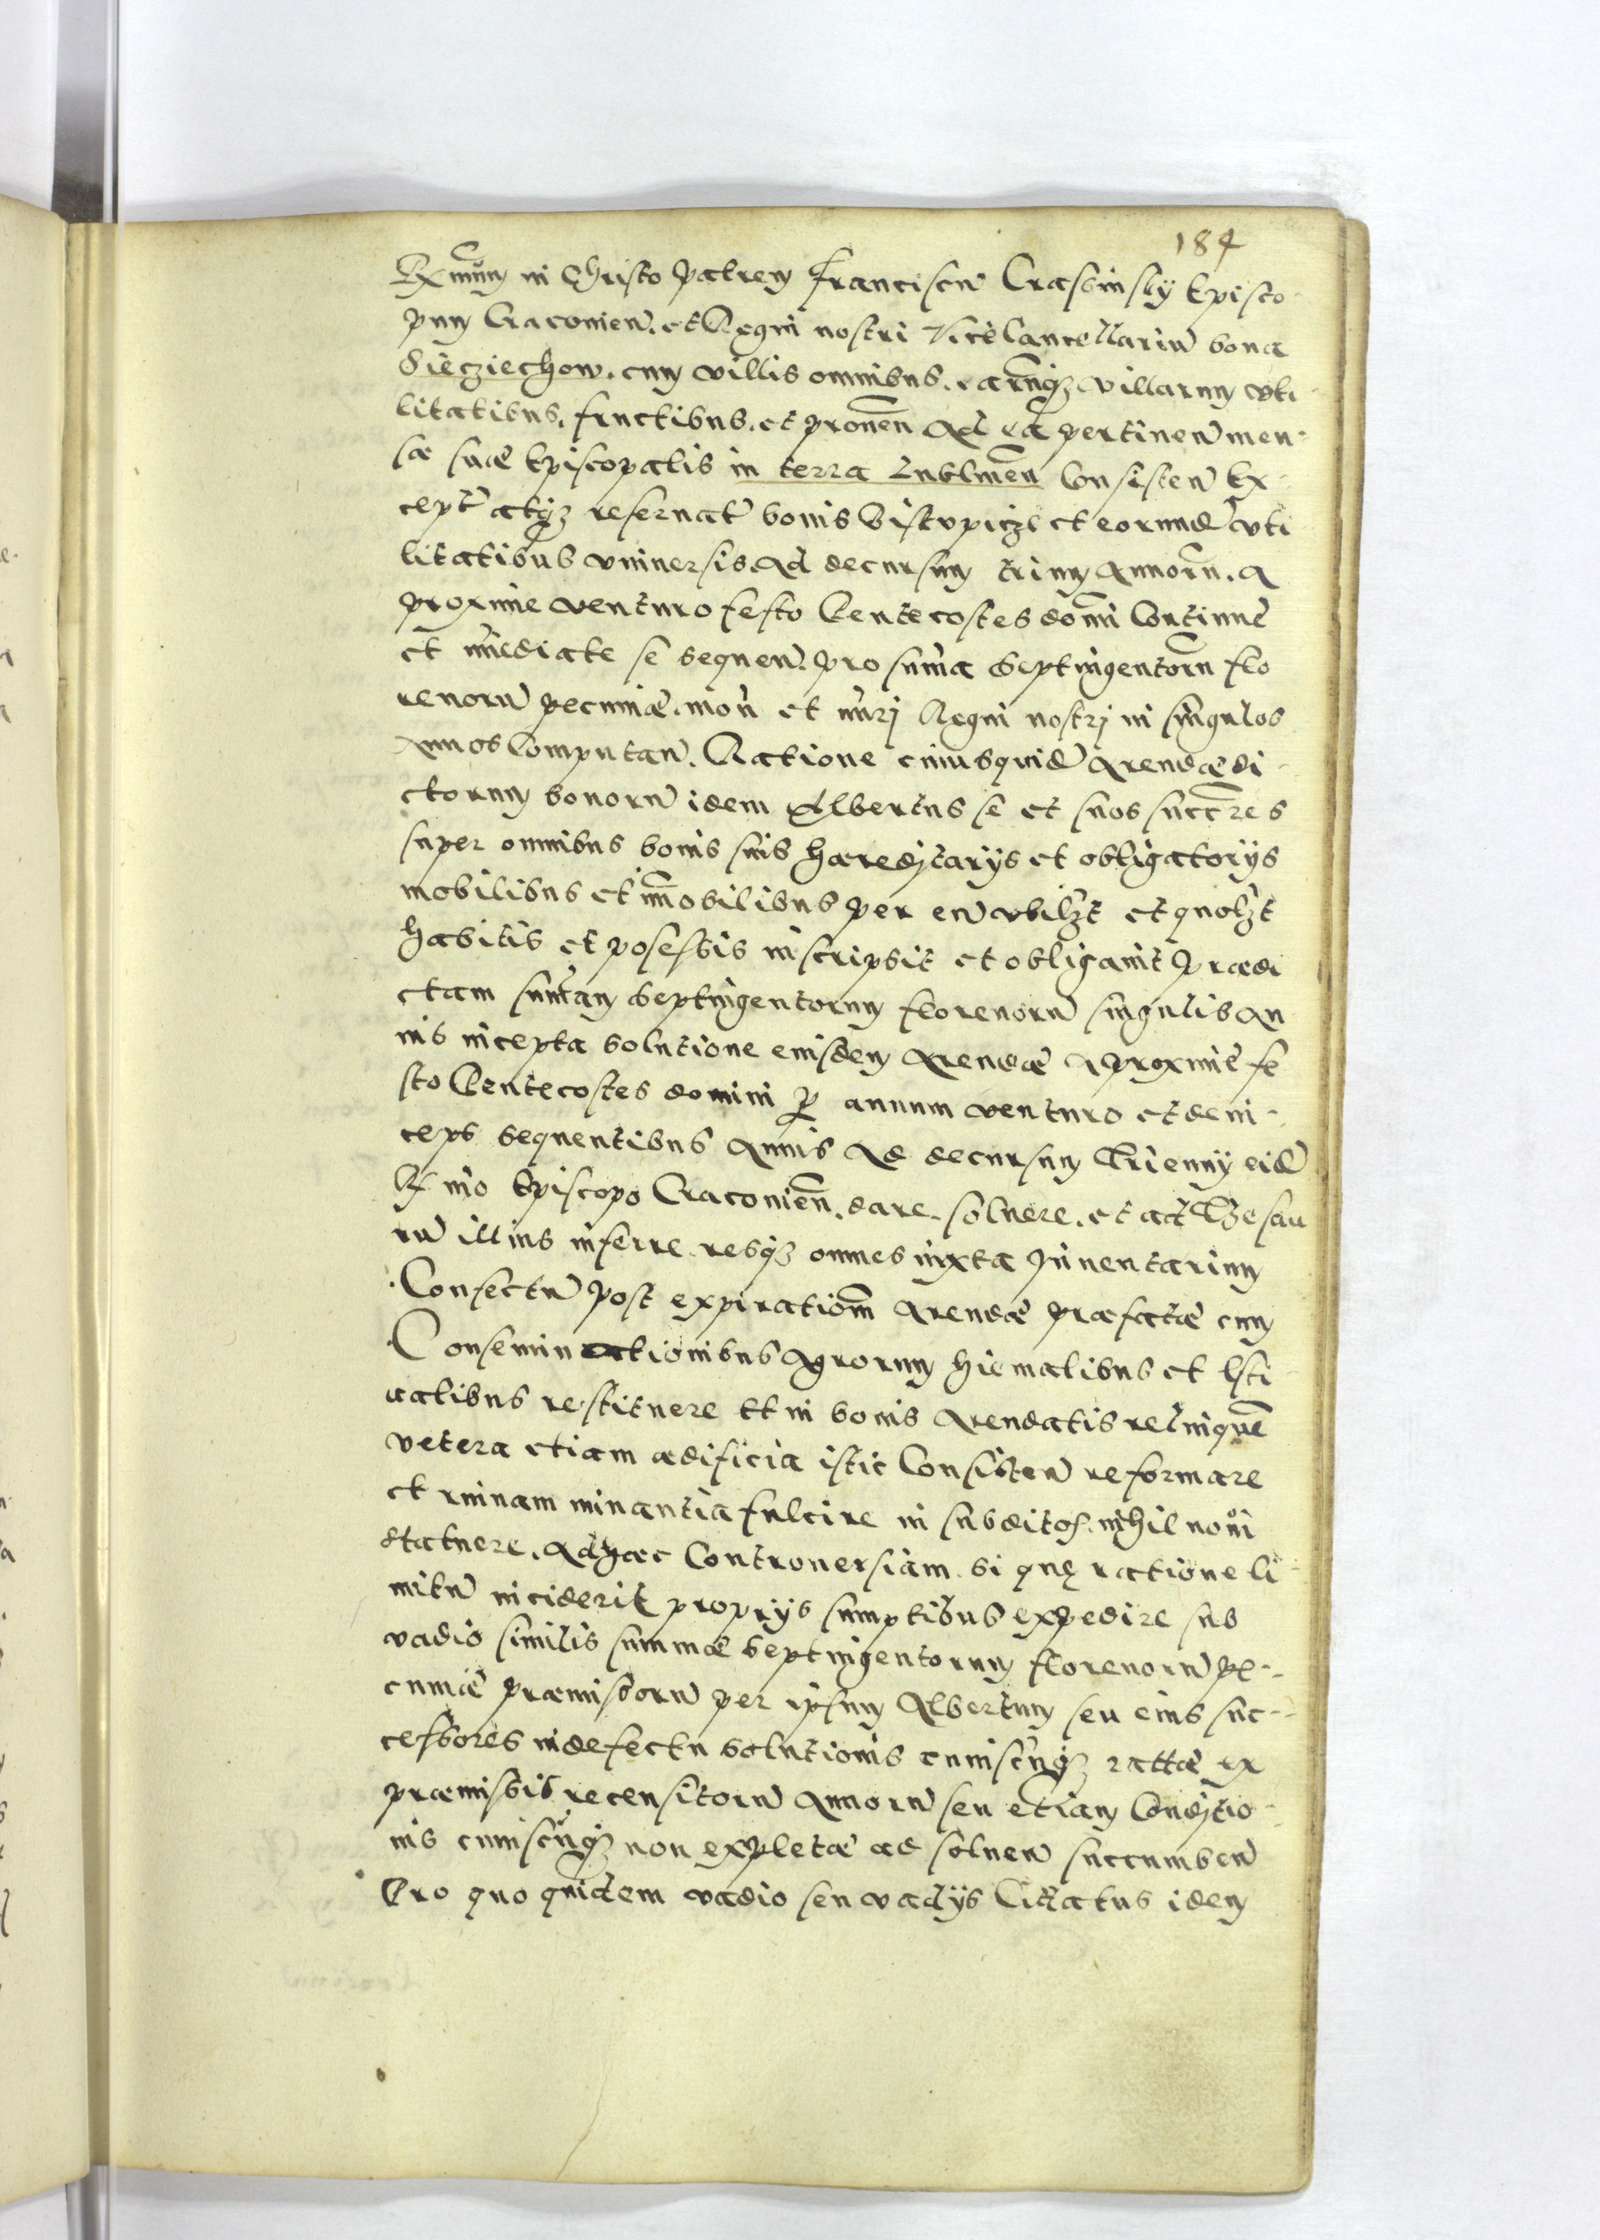 184
R mum in Christo Patrem Franciscū Crasvinsky Episco
pum Cracovien̄. et Regni nostri Vicecancellariū bona
Sieciechow. cum villis omnibus. earūq villarum vti
litatibus, fructibus. et proven̄ ad ea pertinen̄ men
sæ suæ Episcopalis in terra Lublineñ Consisten̄ Ex
cept̄ atq reservat̄ bonis Bistupicze et eorund̄ vti
litatibus vniversis. Ad decursum trium Annorū. a
proxime venturo festo Pentecostes domī Continue
et īmediate se sequen̄. pro sum̄a Septingentorū flo
renorū pecuniæ. mon̄ et nūrj Regni nostrj in singulos
Annos Computan̄. Ratione cuiusquid̄ Arendæ di
ctorum bonorū idem Albertus se et suos succ̄res
super omnibus bonis suis hæreditarijs et obligatorijs
mobilibus et īmobilibus per eū vbilz̄t et quolz̄t
habitis et posessis inscripsit et obligavit Prædi
ctam sum̄am Septingentorum florenorū singulis An
nis incepta solutione eiusdem Arendæ A proxime fe
sto Pentecostes domini p annum venturo et dein
ceps sequentibus Annis Ad decursum Trienny eid̄
R mo Episcopo Cracovien̄. dare. solvere. et ad Thesau
rū illius inferre. resq omnes iuxta Inventarium
Confectū post expirationē Arendæ præfatæ cum
Conseminationibus Agrorum hiemalibus et Esti
valibus restituere et in bonis Arendatis relinquē
vetera etiam ædificia istic Consisten̄ reformare
et ruinam minantia fulcire in subditos. nihil novi
statuere. Adhæc Controversiam si quę ratione li
mitū inciderit proprijs sumptibus expedire sub
vadio similis summæ Septingentorum florenorū pe
cuniæ præmissorū per ipsum Albertum seu eius suc
cessores in defectu solutionis cuiuscūq rattæ ex
præmissis recensitorū Annorū seu etiam Conditio
nis cuiuscūq non expletæ ad solven̄ succumben̄
Pro quo quidem vadio seu vadijs Citatus idem